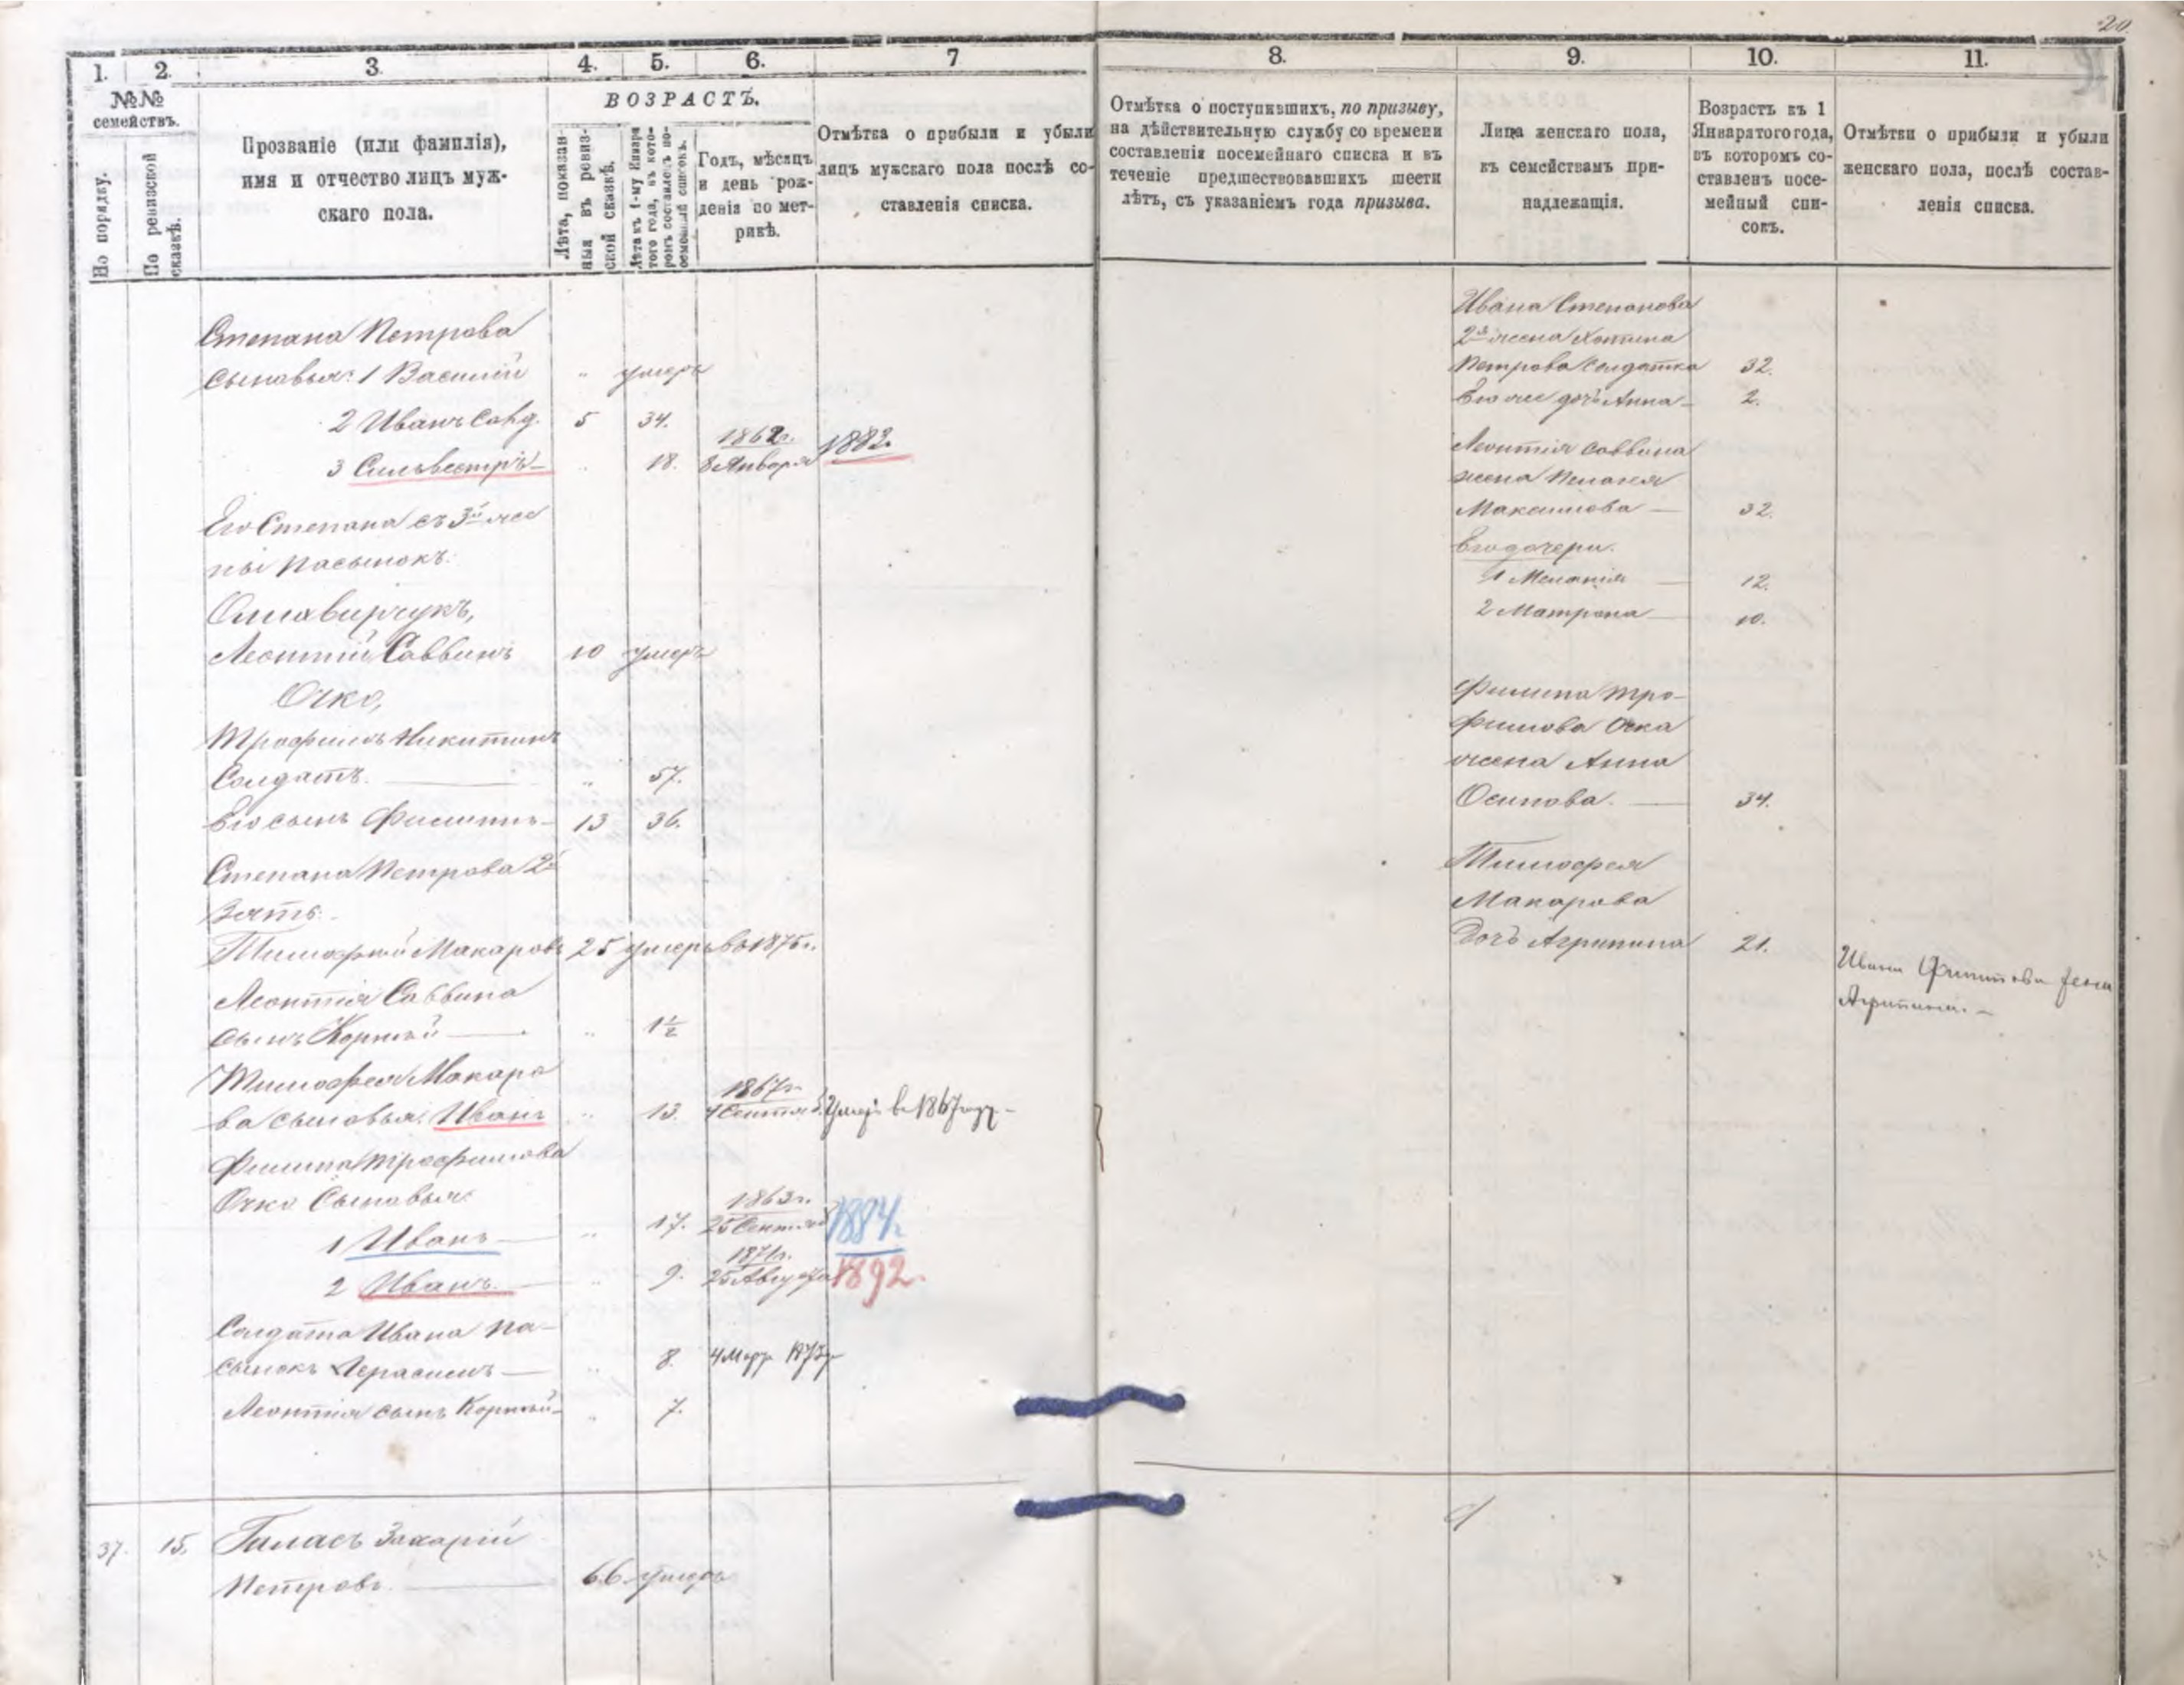 20.
1.
2.
3.
4.
5.
6.
7
№№
семействъ.
По порядку.
По ревизской
сказкѣ.
Прозваніе (или фамилія),
имя и отчество лицъ муж-
скаго пола.
ВОЗРАСТЪ.
Лѣта, показан-
ныя въ ревиз-
ской сказкѣ.
Лѣта къ 1-му Января
того года, въ кото-
ромъ составленъ по-
семейный списокъ.
Годъ, мѣсяцъ
и день рож-
денія по мет-
рикѣ.
Отмѣтка о прибыли и убыли
лицъ мужскаго пола послѣ со-
ставленія списка.
Степана Петрова
сыновья: 1 Василій " умеръ
2 Иванъ Солд. 5 34.
3 Сильвестръ " 18. 1862г. 8 Января 1883.
Его Степана съ 3й же
ны пасынокъ:
Леонтій Саввинъ 10 умеръ
Очко,
Трофимъ Никитинъ
Солдатъ. " 57.
Его сынъ Филиппъ 13 36.
Степана Петрова 2й
Зять:
Тимофей Макаровъ 25 умеръ въ 1875г.
Леонтія Саввина
сынъ Корній " 1½
Тимофея Макаро
ва сыновья: Иванъ " 13. 1867г. 4 Сентяб. Умеръ в 1867 году
Филипа Трофимова
Очко Сыновья:
1 Иванъ " 17. 1863г. 25 Сентяб 1884г.
2 Иванъ " 9. 1871г. 25 Августа 1892.
Солдата Ивана па-
сынокъ Герасимъ " 8. 4 Мар
Леонтія сынъ Корній " 7.
37. 15. Галасъ Захарій
Петровъ. 66 умеръ
8.
9.
10.
11.
Отмѣтка о поступившихъ, по призыву,
на дѣйствительную службу со времени
составленія посемейнаго списка и въ
теченіе предшествовавшихъ шести
лѣтъ, съ указаніемъ года призыва.
Лица женскаго пола,
къ семействамъ при-
надлежащія.
Возрастъ къ 1
Января того года,
въ которомъ со-
ставленъ посе-
мейный спи-
сокъ.
Отмѣтки о прибыли и убыли
женскаго пола, послѣ состав-
ленія списка.
Ивана Степанова
2я жена
Петрова солдатка 32.
Его же дочь Анна 2.
Леонтія Саввина
жена Пелагея
Максимова 32.
Его дочери.
1 Меланія 12.
2 Матрона 10.
Филипа Тро-
фимова Очка
жена Анна
Осипова. 34.
Тимофея
Макарова
Дочь Агрипина 21.
Ивана Филипова жена
Агрипина.